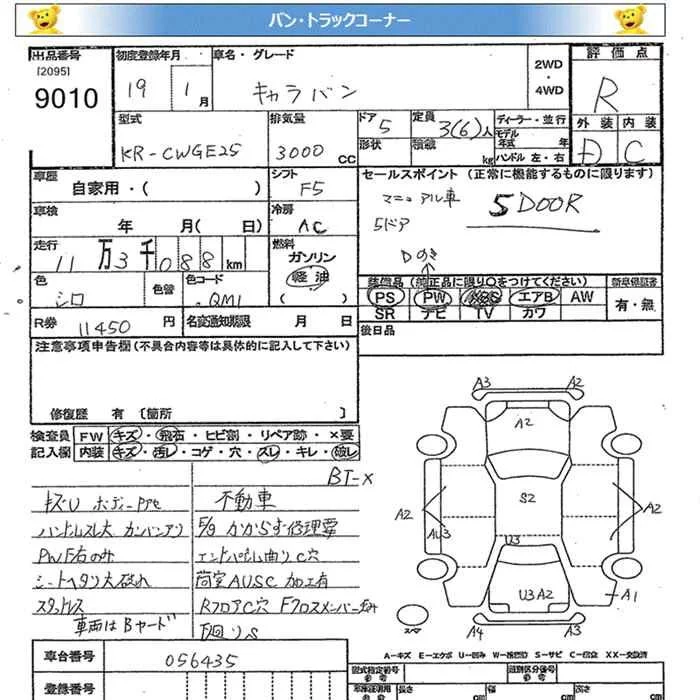 バン・トラックコーナー
出品番号
[2095]
9010
初度登録年月
19 1月
車名・グレード
キャラバン
2WD
・
4WD
評価点
R
外装 内装
D C
型式
KR-CWGE25
排気量
3000 CC
ドア
5
形状
定員
3(6)人
積載
kg
ディーラー・並行
モデル
年式 年
ハンドル 左・右
車歴
自家用・( )
シフト
F5
セールスポイント (正常に機能するものに限ります)
マニュアル車
5ドア
5DOOR
車検
年 月( 日)
冷房
AC
走行
11万3千088km
燃料
ガソリン
軽油
( )
色
シロ
色替
色コード
QM1
装備品 (純正品に限り○をつけてください)
PS PW ABS エアB AW
SR ナビ TV カワ
新車保証書
有・無
R券 11450 円
名変通知期限 月 日
後日品
注意事項申告欄 (不具合内容等は具体的に記入して下さい)
修復歴 有 〔箇所 〕
検査員
記入欄
FW キズ・飛石・ヒビ割・リペア跡・×要
内装 キズ・汚レ・コゲ・穴・スレ・キレ・破レ
BT-X
キズU ボディーアセ
ハンドルスレ大 カンバンアリ
PW F右のみ
シートヘタリ大破れ
スタッドレス
車両はBヤード
不動車
E/g かからず修理要
エンドパネル曲りC穴
荷室AUSC 加工有
RフロアC穴 Fクロスメンバー歪み
下廻りS
A3 A2
A2
S2
A2
AU3
A2
U3
U3 A2
A1
スペア
A4 A3
A-キズ E-エクボ U-凹み W-補修跡 S-サビ C-腐食 XX-交換済
車台番号
056435
登録番号
型式指定番号
類別区分番号
長さ cm
幅 cm
高さ cm